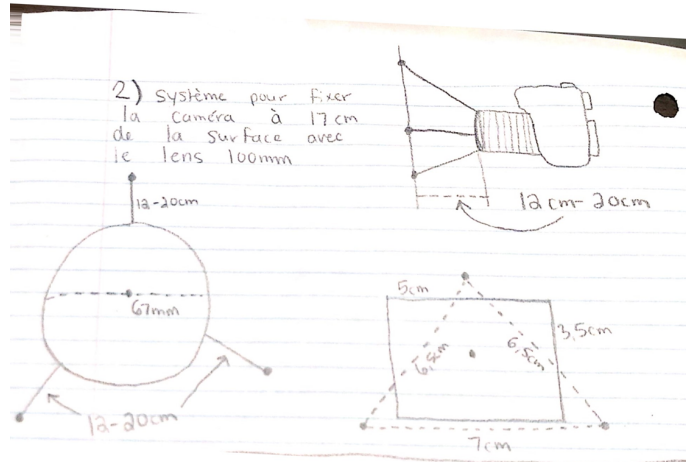 2) système pour fixer
la caméra à 17cm
de la surface avec
le lens 100mm
12cm-20cm
12-20cm
67mm
12-20cm
5cm
3,5cm
6,5cm
6,5cm
7cm